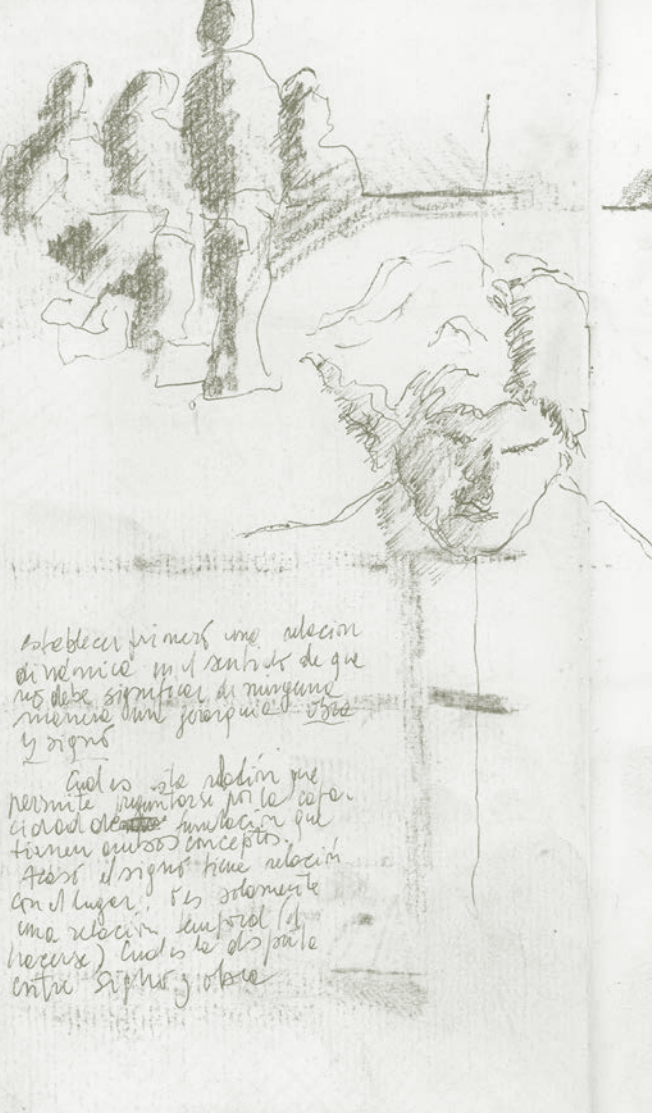 establecer primero una relación
dinámica en el sentido de que
no debe significar de ninguna
manera una jerarquía obra
y signo
Cual es la relación que
permite preguntarse por la capa-
cidad de fundación que
tienen ambos conceptos.
Acaso el signo tiene relación
con el lugar. o es solamente
una relación temporal (el
hacerse) Cual es la disputa
entre signo y obra